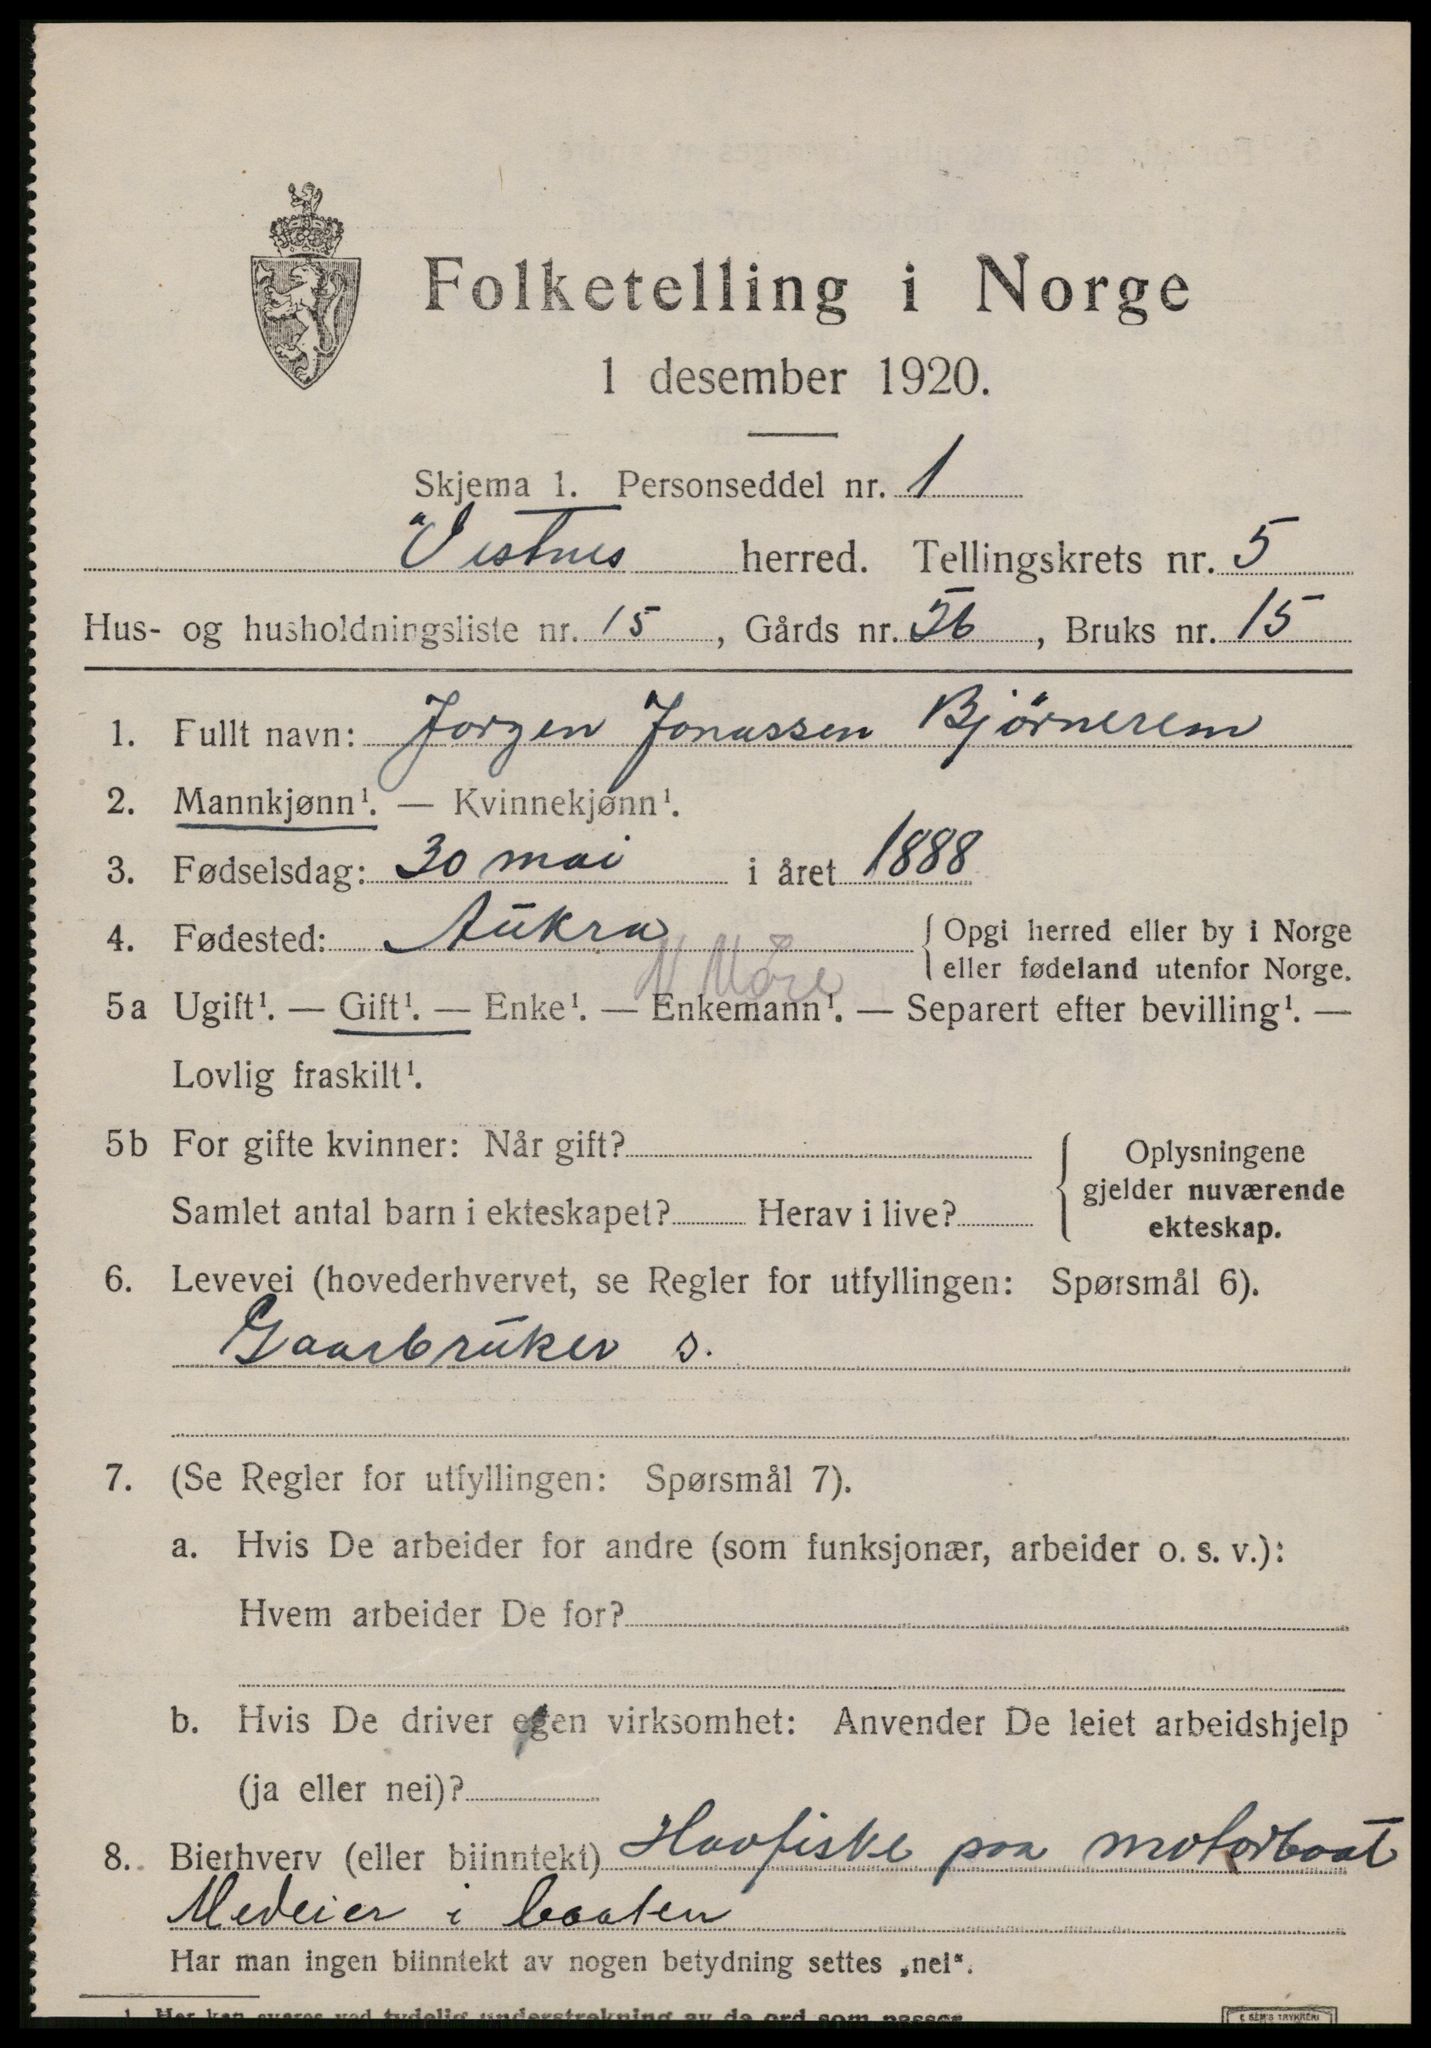 Folketelling i Norge
1 desember 1920.
Skjema 1. Personseddel nr. 1
Vestnes herred. Tellingskrets nr. 5
Hus- og husholdningsliste nr. 15, Gårds nr. 56, Bruks nr. 15
1. Fullt navn: Jorgen Jonassen Bjørnerem
2. Mannkjønn¹. — Kvinnekjønn¹.
3. Fødselsdag: 30 mai i året 1888
4. Fødested: Aukra { Opgi herred eller by i Norge
N Møre { eller fødeland utenfor Norge.
5a Ugift¹. — Gift¹. — Enke¹. — Enkemann¹. — Separert efter bevilling¹. —
Lovlig fraskilt¹.
5b For gifte kvinner: Når gift? { Oplysningene
gjelder nuværende
Samlet antal barn i ekteskapet? Herav i live?
ekteskap.
6. Levevei (hovederhvervet, se Regler for utfyllingen: Spørsmål 6).
Gaarbruker s.
7. (Se Regler for utfyllingen: Spørsmål 7).
a. Hvis De arbeider for andre (som funksjonær, arbeider o. s. v.):
Hvem arbeider De for?
b. Hvis De driver egen virksomhet: Anvender De leiet arbeidshjelp
(ja eller nei)?
8. Bierhverv (eller biinntekt) Havfiske paa motorbaat
Medeier i baaten
Har man ingen biinntekt av nogen betydning settes „nei“.
1 Her kan svares ved tydelig understrekning av de ord som passer.
E SEM'S TRYKKERI